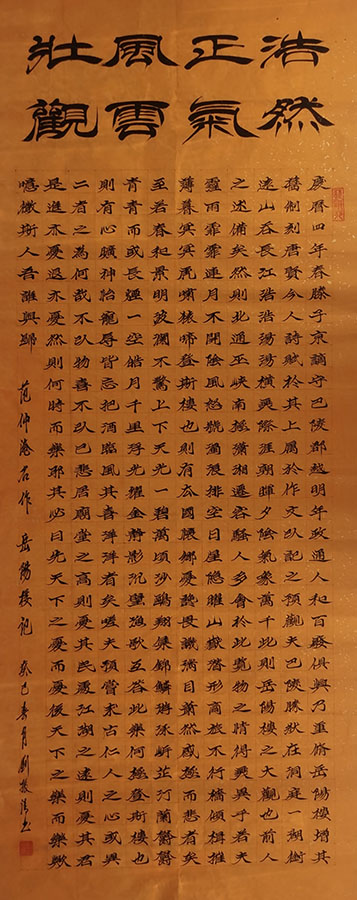 浩然
正氣
風雲
壯觀
慶曆四年春滕子京謫守巴陵郡越明年政通人和百廢俱興乃重脩岳陽樓增其
舊制刻唐賢今人詩賦於其上屬於作文以記之預觀夫巴陵勝狀在洞庭一湖銜
遠山吞長江浩浩湯湯橫無際涯朝暉夕陰氣象萬千此則岳陽樓之大觀也前人
之述備矣然則北通巫峽南極瀟湘遷客騷人多會於此覽物之情得無異乎若夫
靈雨霏霏連月不開陰風怒號濁浪排空日星隱曜山嶽潛形商旅不行檣傾楫摧
薄暮冥冥虎嘯猿啼登斯樓也則有去國懷鄉憂讒畏譏滿目蕭然感極而悲者矣
至若春和景明波瀾不驚上下天光一碧萬頃沙鷗翔集錦鱗游泳岸芷汀蘭鬱鬱
青青而或長煙一空皓月千里浮光耀金靜影沉璧漁歌互答此樂何極登斯樓也
則有心曠神怡寵辱皆忘把酒臨風其喜洋洋者矣嗟夫預嘗求古仁人之心或異
二者之為何哉不以物喜不以己悲居廟堂之高則憂其民處江湖之遠則憂其君
是進亦憂退亦憂然則何時而樂耶其必曰先天下之憂而憂後天下之樂而樂歟
噫微斯人吾誰與歸
范仲淹名作 岳陽樓記 癸巳春月劉敬